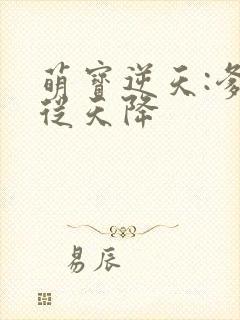 萌寳逆天:爹
從天降
易辰